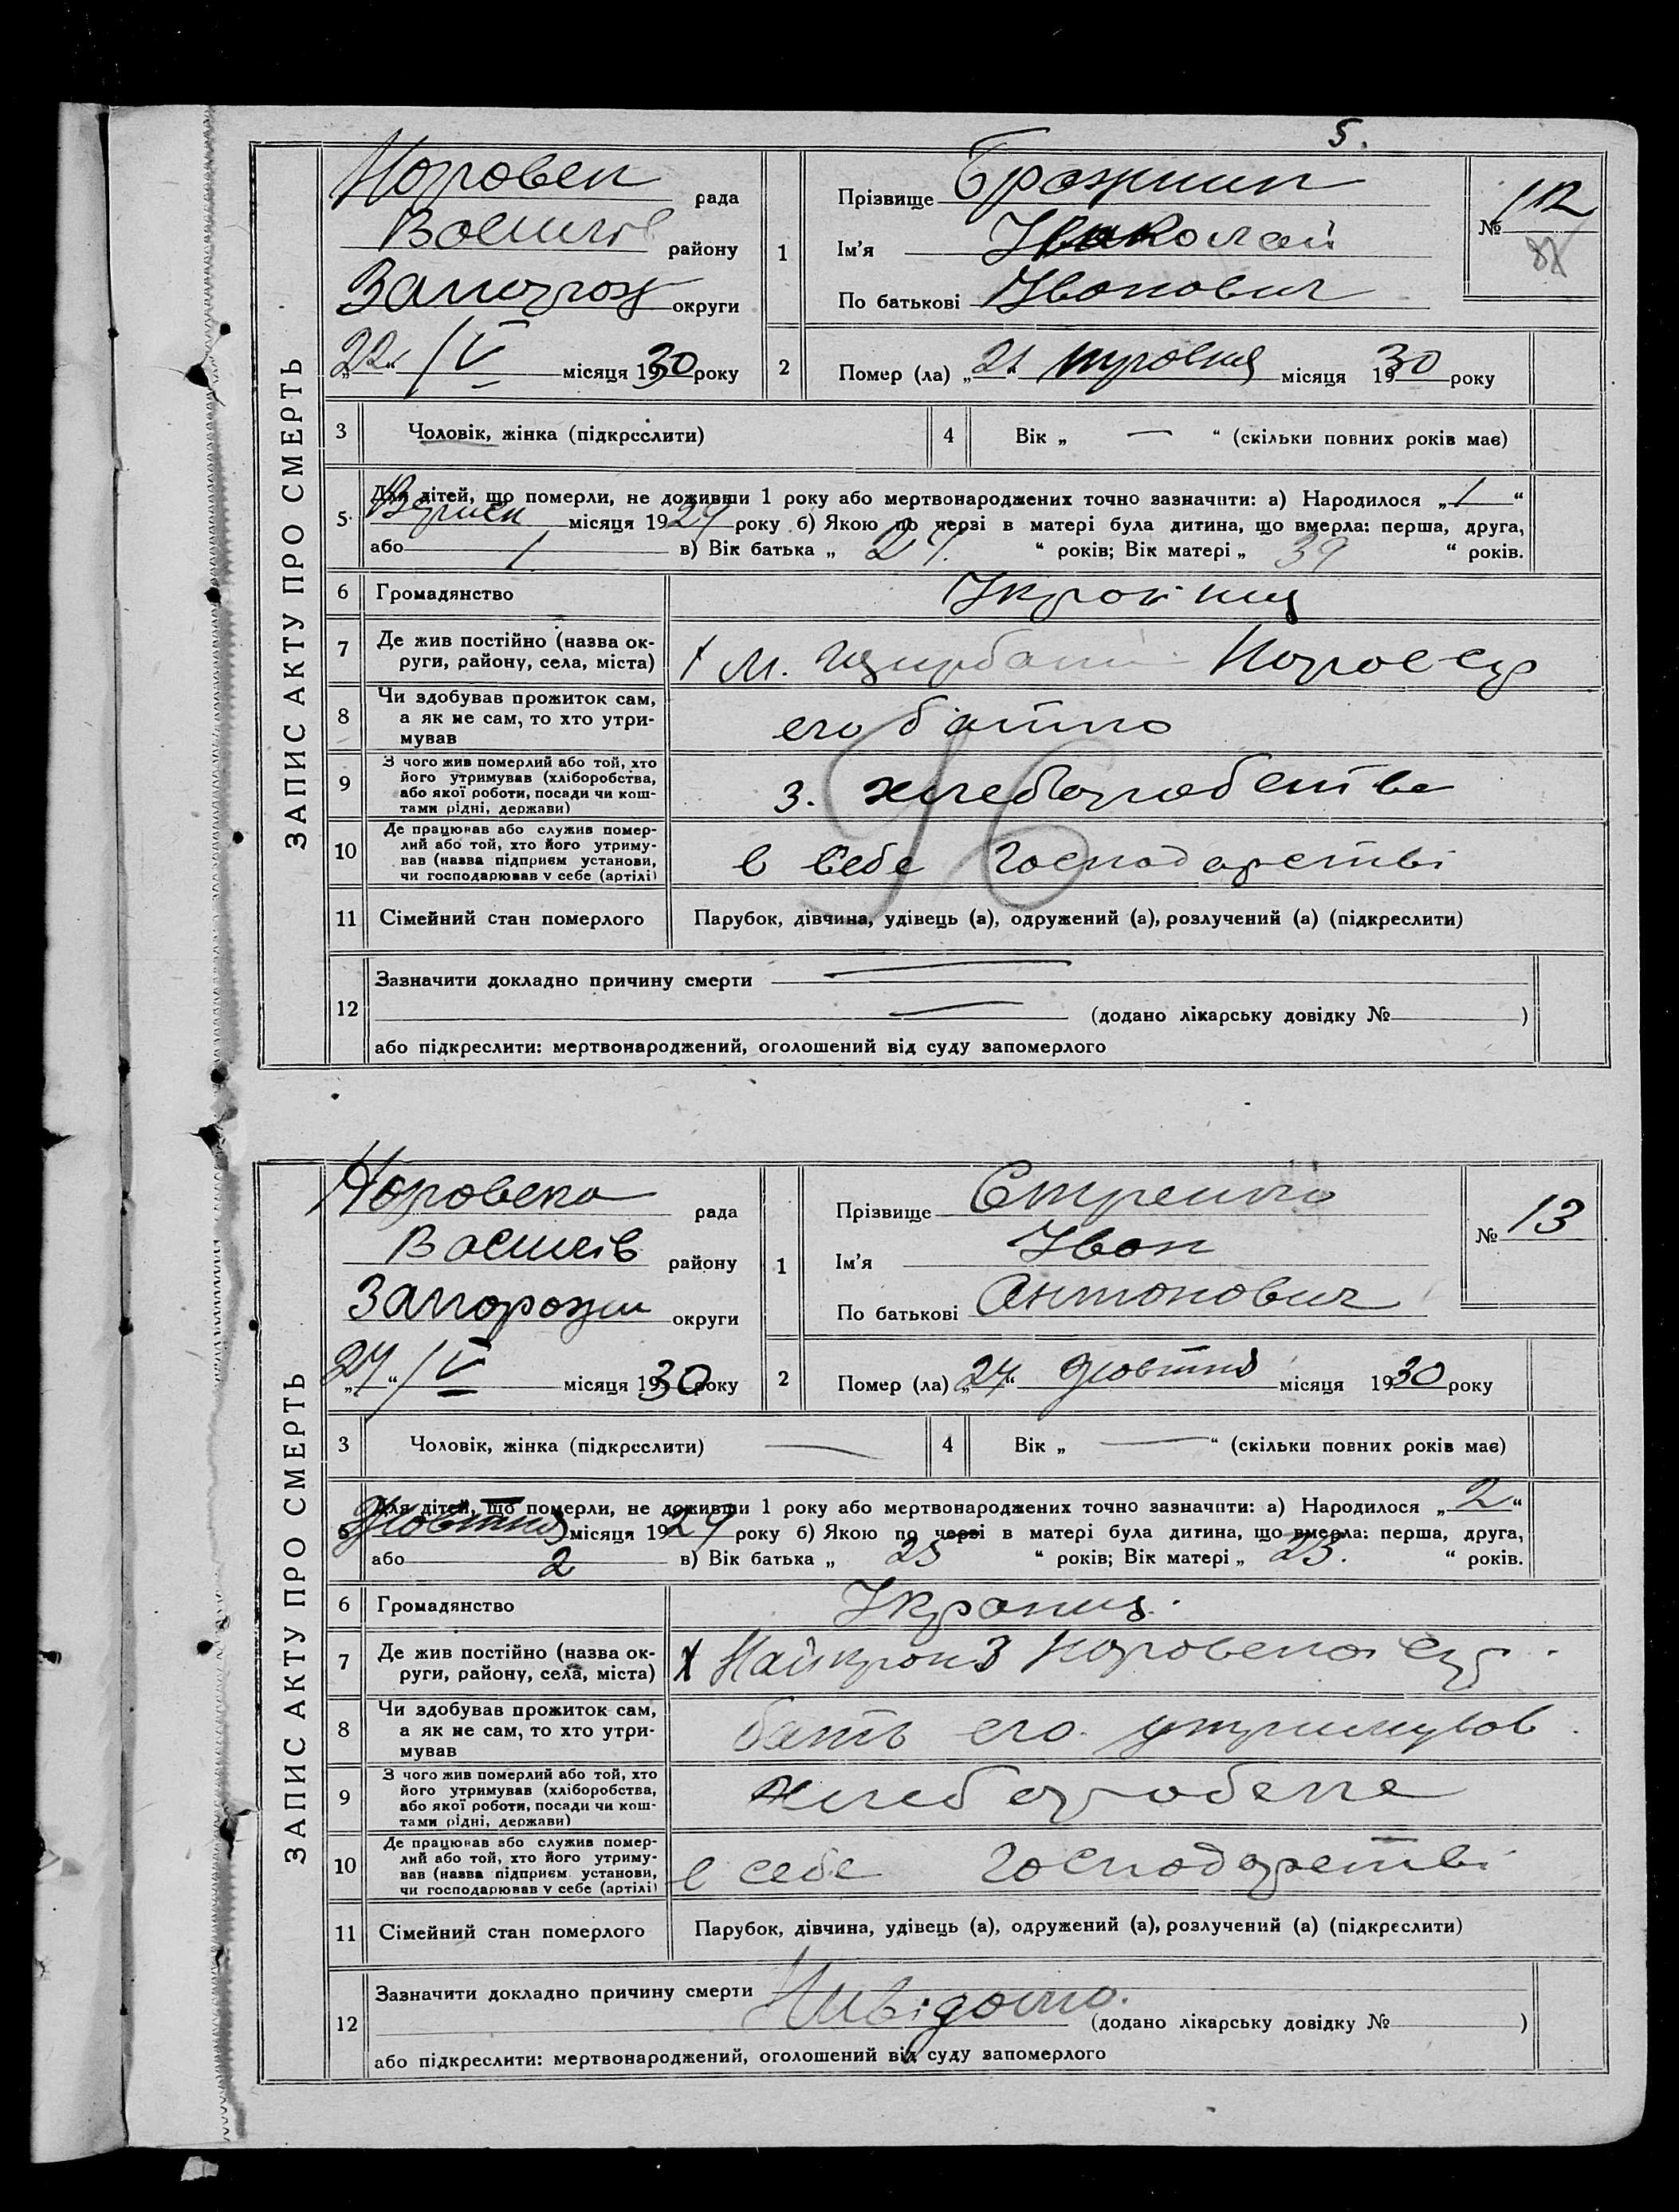 5.
ЗАПИС АКТУ ПРО СМЕРТЬ
рада
району
округи
"22" / V місяця 1930 року
1
Прізвище
Ім'я Николай
По батькові Иванович
№ 12
2
Помер (ла) "21" травня місяця 1930 року
3
Чоловік, жінка (підкреслити)
4
Вік „ — “ (скільки повних років має)
5
Для дітей, що померли, не доживши 1 року або мертвонароджених точно зазначити: а) Народилося „1“
місяця 1929 року б) Якою по черзі в матері була дитина, що вмерла: перша, друга,
або 1 в) Вік батька „ “ років; Вік матері „ 39 “ років.
6
Громадянство
7
Де жив постійно (назва ок-
руги, району, села, міста)
8
Чи здобував прожиток сам,
а як не сам, то хто утри-
мував
его батько
9
З чого жив померлий або той, хто
його утримував (хліборобства,
або якої роботи, посади чи кош-
тами рідні, держави)
з. хлеборобства
10
Де працював або служив помер-
лий або той, хто його утриму-
вав (назва підприєм установи,
чи господарював у себе (артілі)
в себе господарстві
96
11
Сімейний стан померлого
Парубок, дівчина, удівець (а), одружений (а), розлучений (а) (підкреслити)
12
Зазначити докладно причину смерти —
— (додано лікарську довідку № )
або підкреслити: мертвонароджений, оголошений від суду запомерлого
ЗАПИС АКТУ ПРО СМЕРТЬ
рада
Василів району
Запорожж округи
"27" / V місяця 1930 року
1
Прізвище
Ім'я Иван
По батькові Антонович
№ 13
2
Помер (ла) "27" жовтня місяця 1930 року
3
Чоловік, жінка (підкреслити) —
4
Вік „ — “ (скільки повних років має)
5
Для дітей, що померли, не доживши 1 року або мертвонароджених точно зазначити: а) Народилося „2“
Жовтня місяця 1929 року б) Якою по черзі в матері була дитина, що вмерла: перша, друга,
або 2 в) Вік батька „ 25 “ років; Вік матері „ 23. “ років.
6
Громадянство
7
Де жив постійно (назва ок-
руги, району, села, міста)
8
Чи здобував прожиток сам,
а як не сам, то хто утри-
мував
бать его утримував
9
З чого жив померлий або той, хто
його утримував (хліборобства,
або якої роботи, посади чи кош-
тами рідні, держави)
10
Де працював або служив помер-
лий або той, хто його утриму-
вав (назва підприєм. установи,
чи господарював у себе (артілі)
в себе господарстві
11
Сімейний стан померлого
Парубок, дівчина, удівець (а), одружений (а), розлучений (а) (підкреслити)
12
Зазначити докладно причину смерти
(додано лікарську довідку № )
або підкреслити: мертвонароджений, оголошений від суду запомерлого